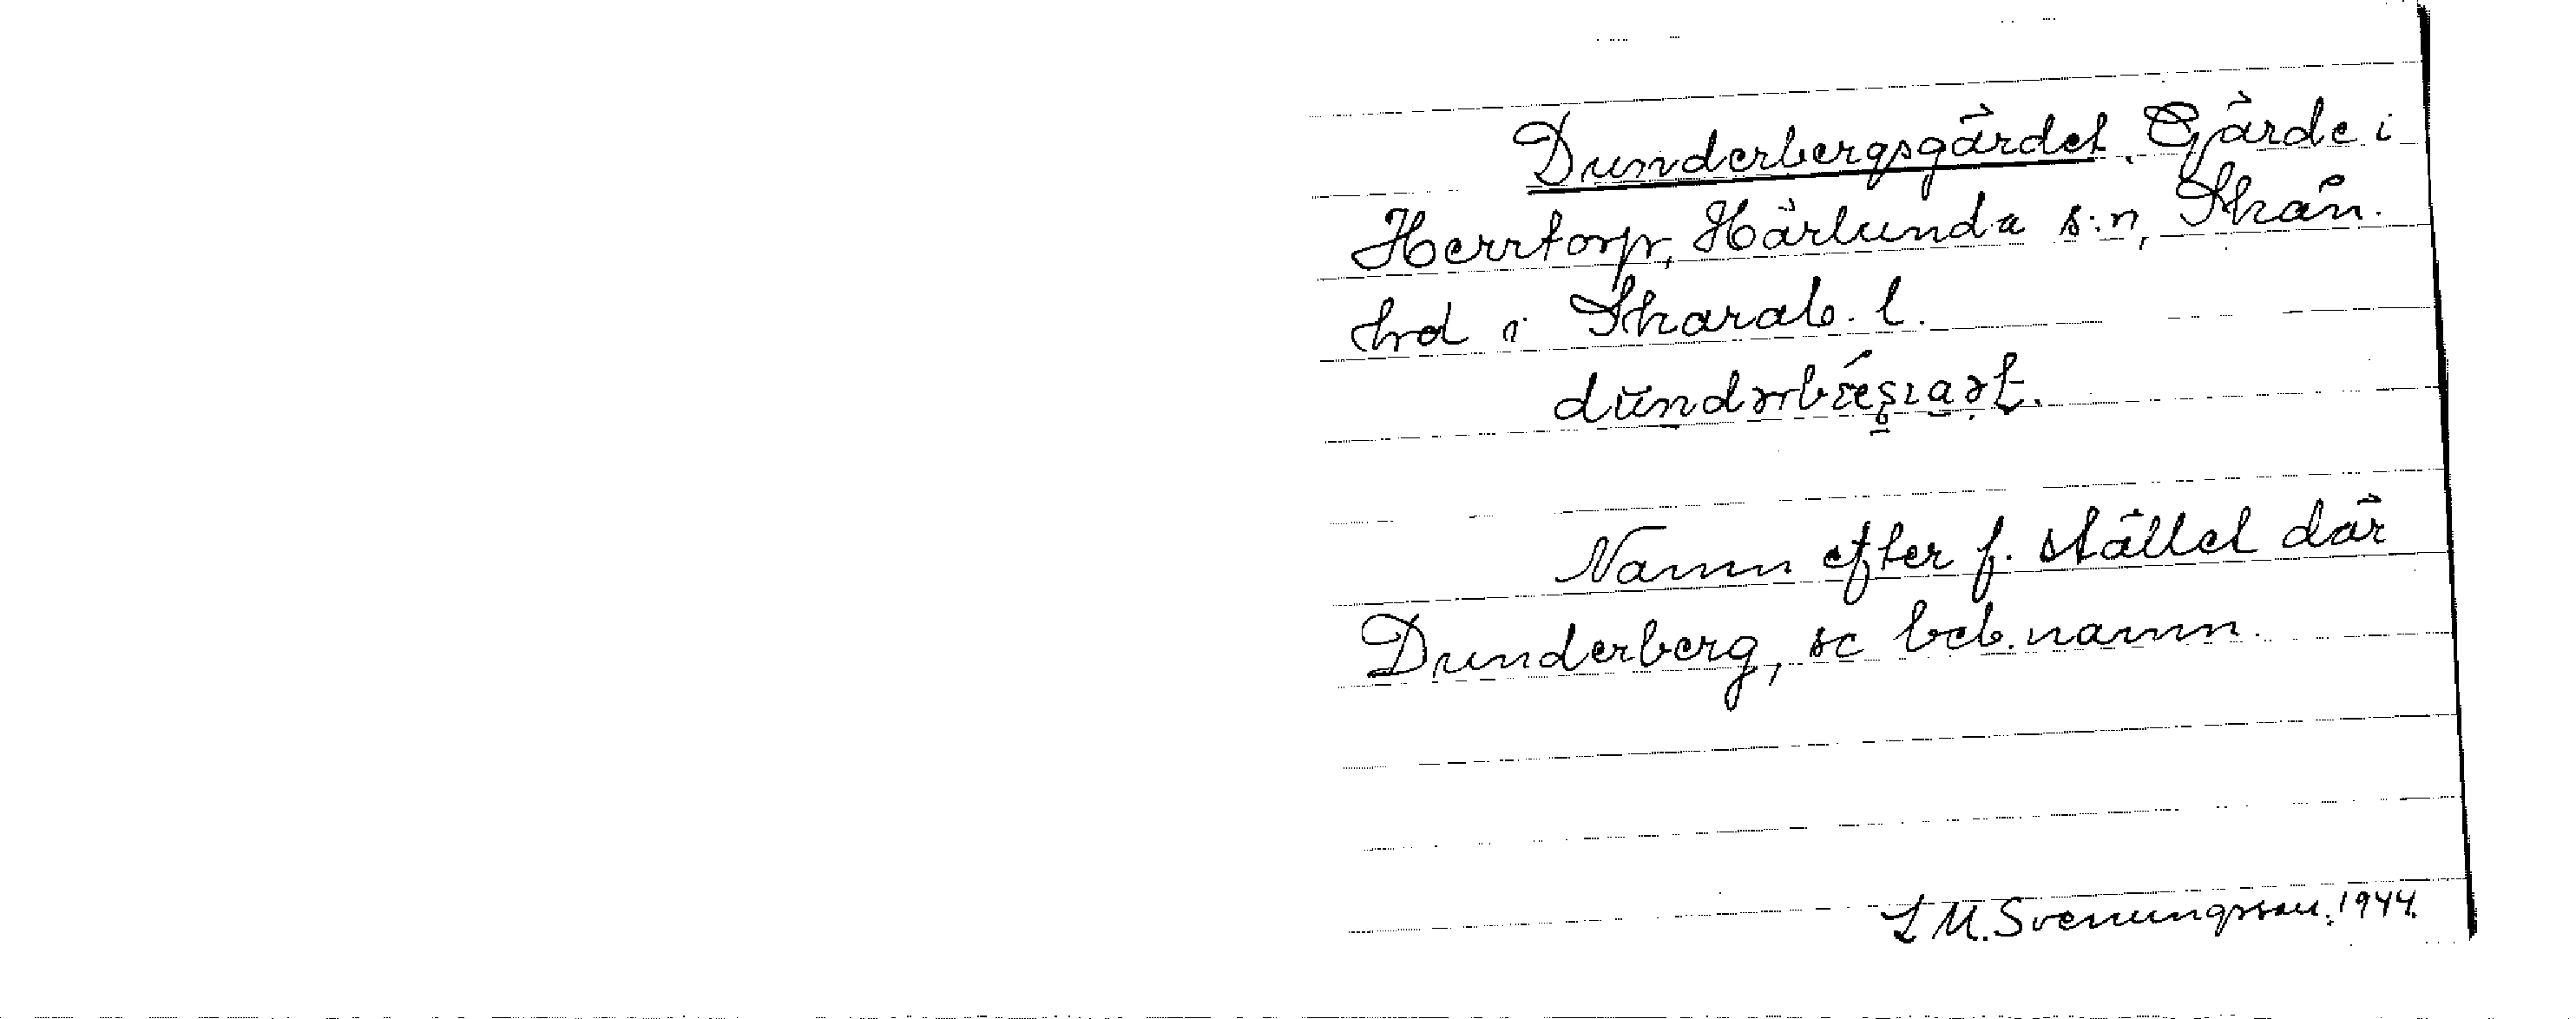 Dunderbergsgärdet. Gärde i
Herrtorp, Härlunda s:n, Skån.
hrd i Skarab. l.
Namn efter f. stället där
Dunderberg, se beb.namn.
L M. Svenungsson. 1944.